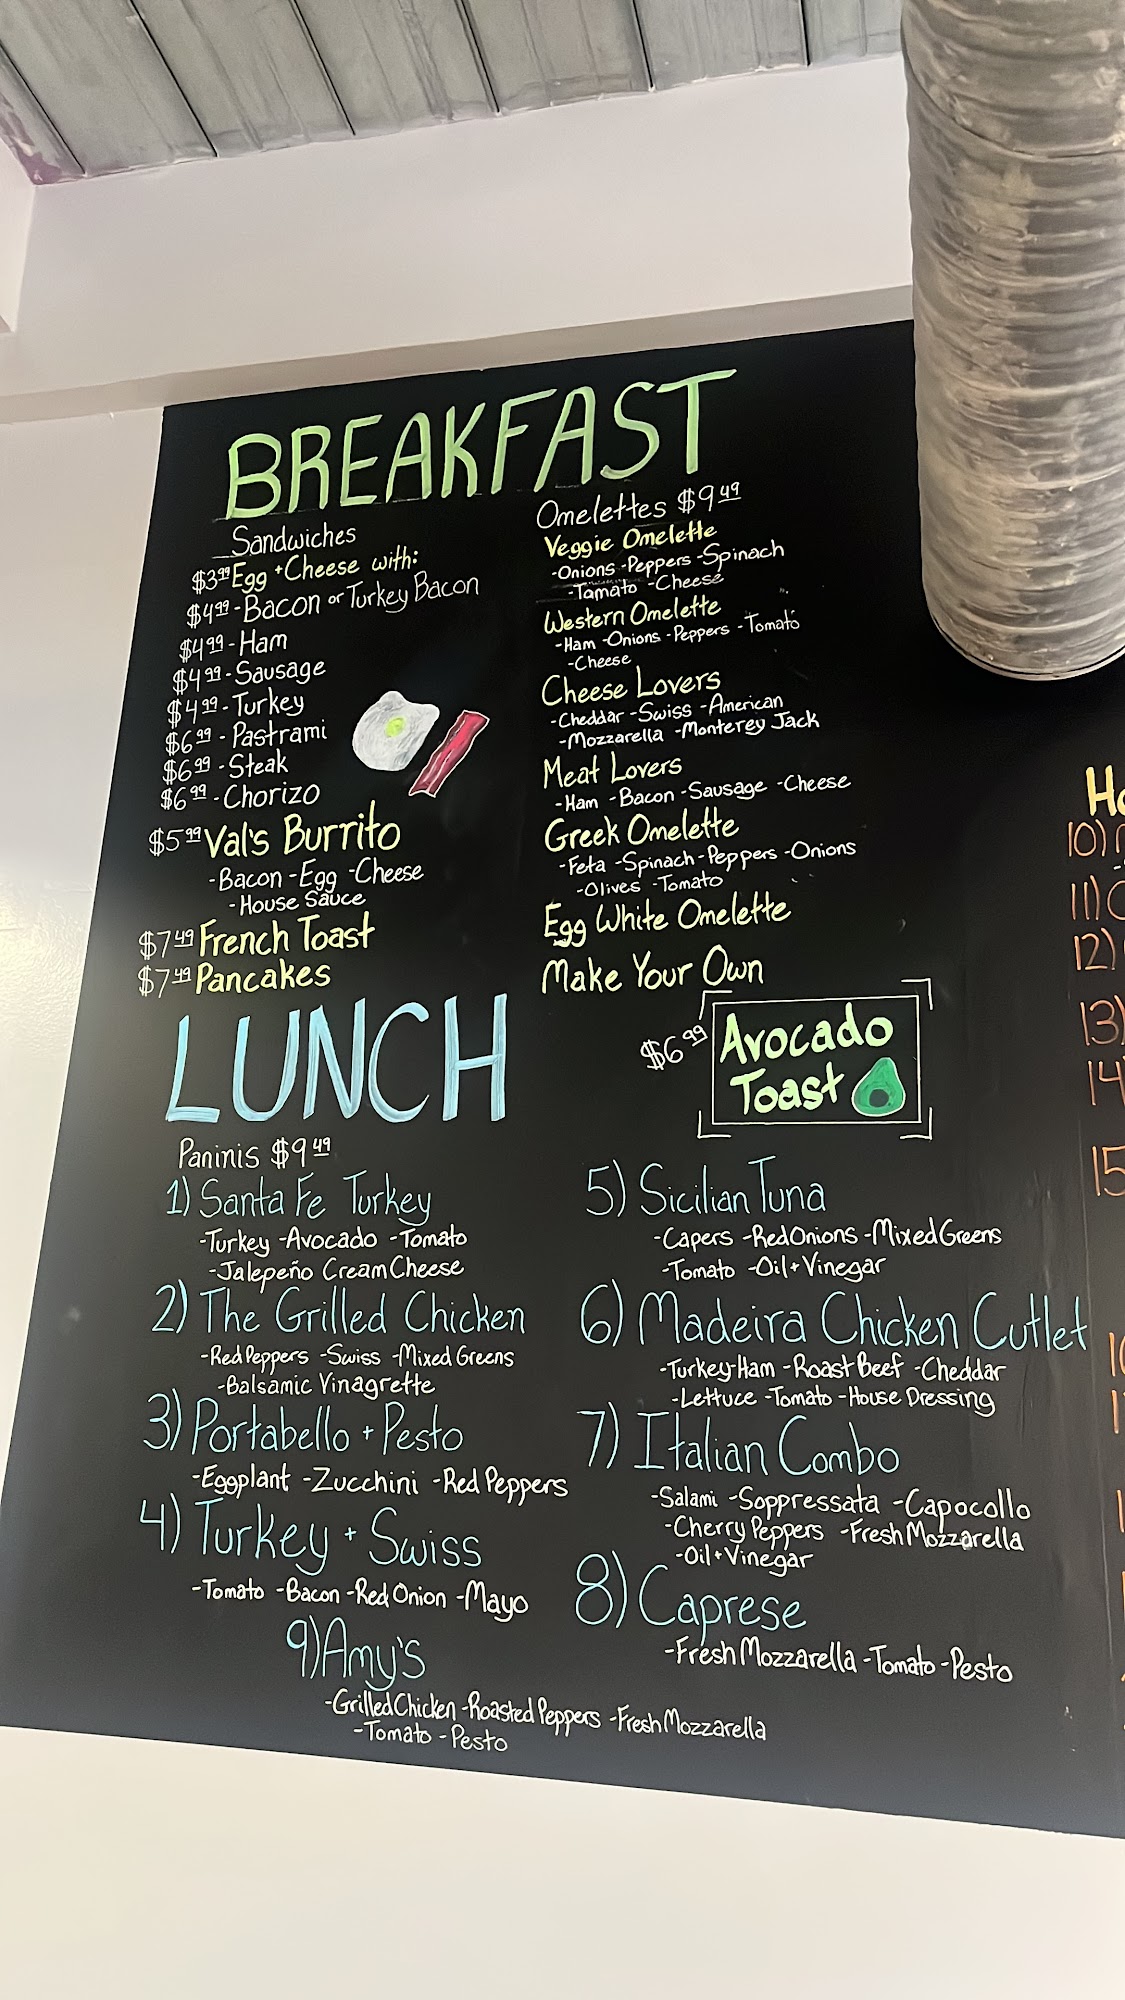 BREAKFAST
Sandwiches
$3.99 Egg + Cheese with:
$4.99 - Bacon or Turkey Bacon
$4.99 - Ham
$4.99 - Sausage
$4.99 - Turkey
$6.99 - Pastrami
$6.99 - Steak
$6.99 - Chorizo
$5.99 Val's Burrito
-Bacon -Egg -Cheese
-House Sauce
$7.49 French Toast
$7.49 Pancakes
Omelettes $9.49
Veggie Omelette
-Onions -Peppers -Spinach
-Tomato -Cheese
Western Omelette
-Ham -Onions -Peppers -Tomato
-Cheese
Cheese Lovers
-Cheddar -Swiss -American
-Mozzarella -Monterey Jack
Meat Lovers
-Ham -Bacon -Sausage -Cheese
Greek Omelette
-Feta -Spinach -Peppers -Onions
-Olives -Tomato
Egg White Omelette
Make Your Own
$6.99 Avocado
Toast
LUNCH
Paninis $9.49
1) Santa Fe Turkey
-Turkey -Avocado -Tomato
-Jalepeño Cream Cheese
2) The Grilled Chicken
-Red Peppers -Swiss -Mixed Greens
-Balsamic Vinagrette
3) Portabello + Pesto
-Eggplant -Zucchini -Red Peppers
4) Turkey + Swiss
-Tomato -Bacon -Red Onion -Mayo
5) Sicilian Tuna
-Capers -Red Onions -Mixed Greens
-Tomato -Oil + Vinegar
6) Madeira Chicken Cutlet
-Turkey-Ham -Roast Beef -Cheddar
-Lettuce -Tomato -House Dressing
7) Italian Combo
-Salami -Soppressata -Capocollo
-Cherry Peppers -Fresh Mozzarella
-Oil + Vinegar
8) Caprese
-Fresh Mozzarella -Tomato -Pesto
9) Amy's
-Grilled Chicken -Roasted Peppers -Fresh Mozzarella
-Tomato -Pesto
10)
11)
12)
13)
14
15